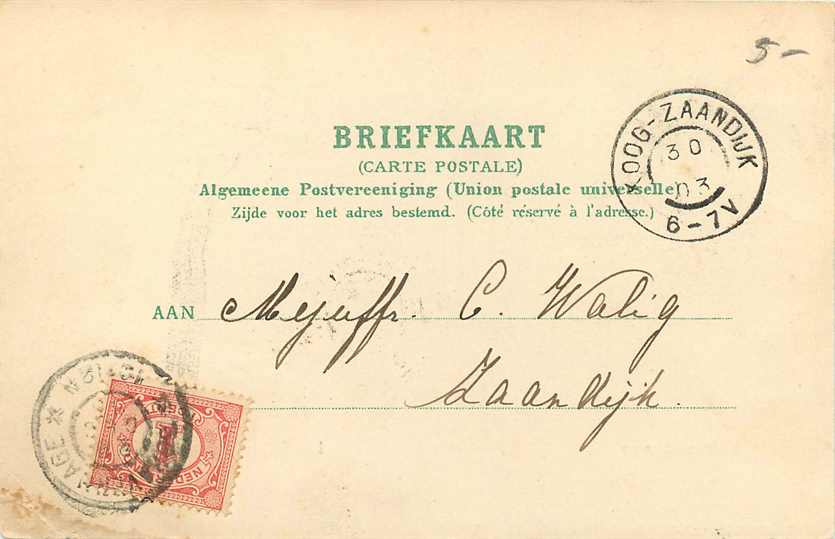 5-
KOOG-ZAANDIJK
30
03
6-7V
BRIEFKAART
(CARTE POSTALE)
Algemeene Postvereeniging (Union postale universelle)
Zijde voor het adres bestemd. (Côté réservé à l'adresse.)
AAN Mejuffr. C. Walig
Zaandijk.
12-N
HAGE
NEDERL